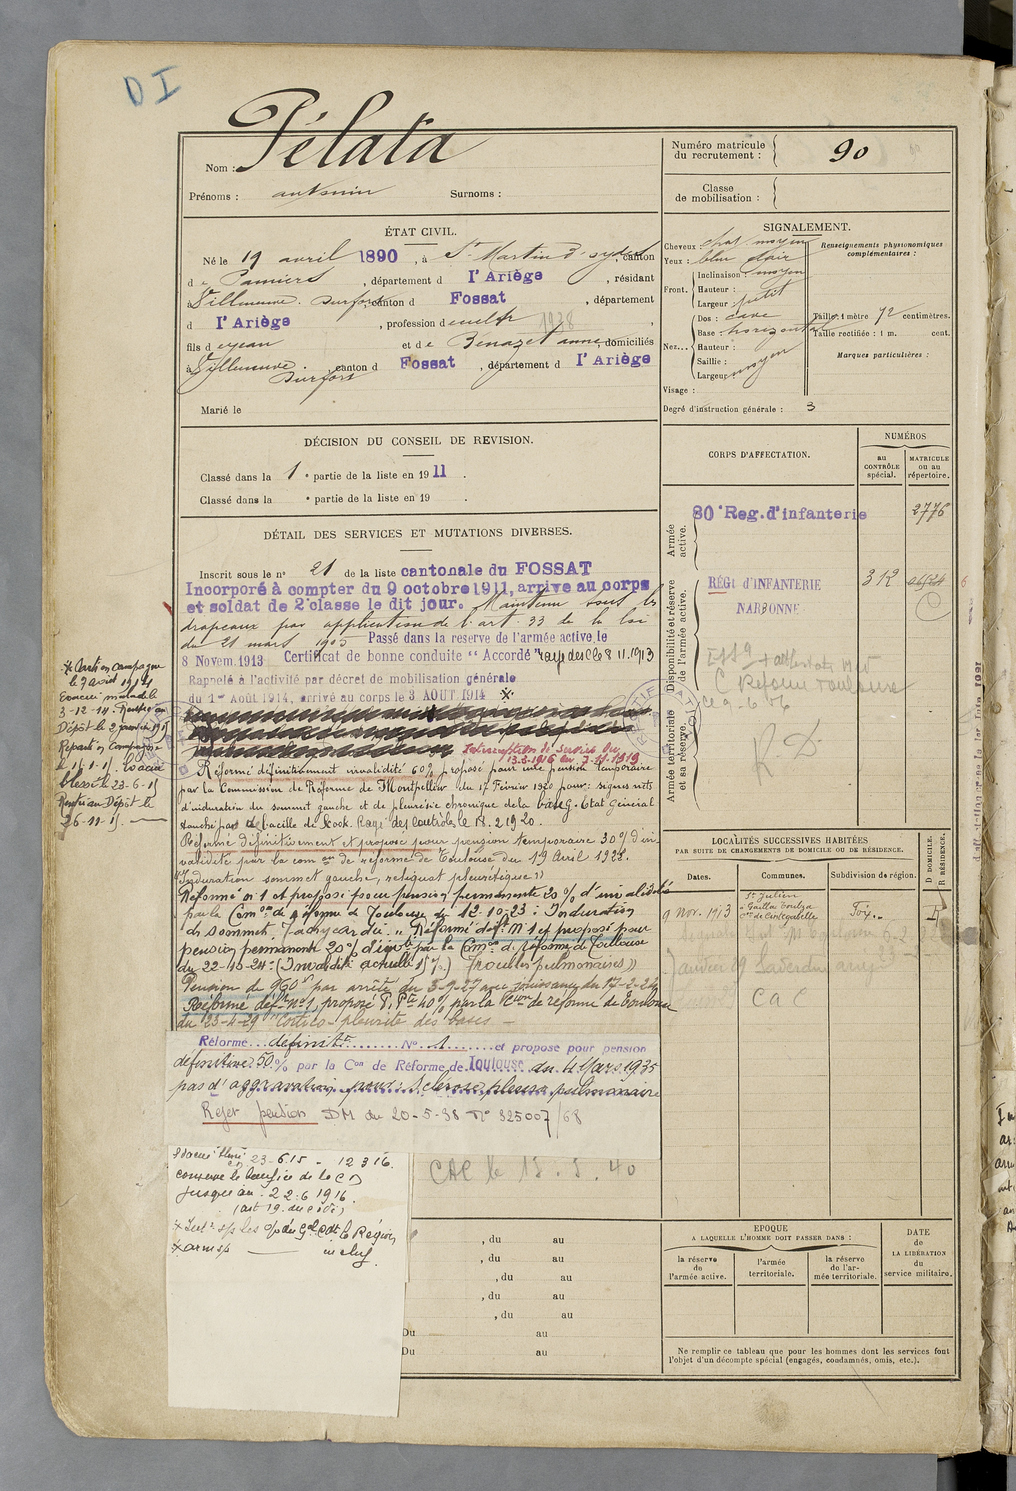 D I
Nom : Pélata
Prénoms : antonin Surnoms :
Numéro matricule
du recrutement : 90
Classe
de mobilisation :
ÉTAT CIVIL.
Né le 19 avril 1890, à St Martin d'oydes canton
de Pamiers, département d l'Ariège, résidant
à Villeneuve. Durfort, canton d Fossat, département
d l'Ariège, profession de cultr 1938,
fils de jean et de Benazet anne, domiciliés
à Villeneuve. Durfort canton d Fossat, département d l'Ariège
Marié le
SIGNALEMENT.
Cheveux : chat moyen
Yeux : bleu clair
Front. Inclinaison : moyen
Hauteur :
Largeur petit
Nez... Dos : cave
Base : horizontal
Hauteur :
Saillie :
Largeur moyen
Visage :
Degré d'instruction générale : 3
Renseignements physionomiques
complémentaires :
Taille : 1 mètre 72 centimètres.
Taille rectifiée : 1 m. cent.
Marques particulières :
DÉCISION DU CONSEIL DE REVISION.
Classé dans la 1e partie de la liste en 1911.
Classé dans la e partie de la liste en 19 .
DÉTAIL DES SERVICES ET MUTATIONS DIVERSES.
Inscrit sous le n° 21 de la liste cantonale du FOSSAT
Incorporé à compter du 9 octobre 1911, arrive au corps
et soldat de 2e classe le dit jour. Maintenu sous les
drapeaux par application de l'art. 33 de la loi
du 21 mars 1905 Passé dans la reserve de l'armée active, le
8 Novem. 1913 Certificat de bonne conduite "Accordé" rayé des cles 8 11.1913
Rappelé à l'activité par décret de mobilisation générale
du 1er Août 1914, arrivé au corps le 3 AOUT 1914 *
Interruption de service du
13.3.1916 au 7.11.1919
Réformé définitivement invalidité 60% proposé pour une pension temporaire
par la Commission de Réforme de Montpellier du 17 Février 1920 pour : signes nets
d'induration du sommet gauche et de pleurésie chronique de la base g. Etat Général
touché pas de bacille de Kock. Rayé des contrôles le 18.2 1920.
Réformé définitivement et proposé pour pension temporaire 30% d'in
validité par la com on de réforme de Toulouse du 19 Avril 1922.
"Induration sommet gauche, reliquat pleurétique"
Réformé n° 1 et proposé pour pension permanente 20% d'invalidité
par la Com on de réforme de Toulouse du 12-10-23 : Induration
du sommet, Tachycardie. " Réformé déf. N° 1 et proposé pour
pension permanente 20% d'inv té par la Com on de réforme de Toulouse
Pension de 960f par arrêté du 3-9-27 avec jouissance du 17-2-24
Réformé déf n° 1, proposé P. Pte 40% par la Con de réforme de Toulouse
du 23-4-29 "Cortico-pleurite des bases
Réformé définitt N° 1 et propose pour pension
définitive 50% par la Con de Réforme de Toulouse du 4 Mars 1935
pas d'aggravation pour : sclérose pleuro pulmonaire
Rejet pension DM du 20-5-38 N° 325007/68
* Parti en campagne
le 9 août 1914
Evacué malade le
3-12-14. Rentré au
Dépôt le 2 janvier 1915
Reparti en Campagne
Evacué
blessé le 23-6-15
Rentré au Dépôt le
26-11-15
23-6 15 - 12 3 16.
conserve le bénéfice de la CD
jusqu'au 22-6 1916
(art 19. du c i d i)
CAC le 15. 5. 40
, du au
, du au
, du au
, du au
, du au
Du au
Du au
CORPS D'AFFECTATION.
NUMÉROS
au
CONTRÔLE
spécial.
MATRICULE
ou au
répertoire.
Armée
active.
80e Reg. d'infanterie 2776
Disponibilité et réserve
de l'armée active.
RÉGt d'INFANTERIE
NARBONNE 312
C Réforme Toulouse
Armée territoriale
et sa réserve.
R D.
LOCALITÉS SUCCESSIVES HABITÉES
PAR SUITE DE CHANGEMENTS DE DOMICILE OU DE RÉSIDENCE.
Dates.
Communes.
Subdivision de région.
D DOMICILE.
R RÉSIDENCE.
9 nov. 1913 St Julien
Gaillac Toulza
Con de Cintegabelle Foix. R
Saverdun
CAC
EPOQUE
A LAQUELLE L'HOMME DOIT PASSER DANS :
la réserve
de
l'armée active.
l'armée
territoriale.
la réserve
de l'ar-
mée territoriale.
DATE
de
LA LIBÉRATION
du
service militaire.
Ne remplir ce tableau que pour les hommes dont les services font
l'objet d'un décompte spécial (engagés, condamnés, omis, etc.).